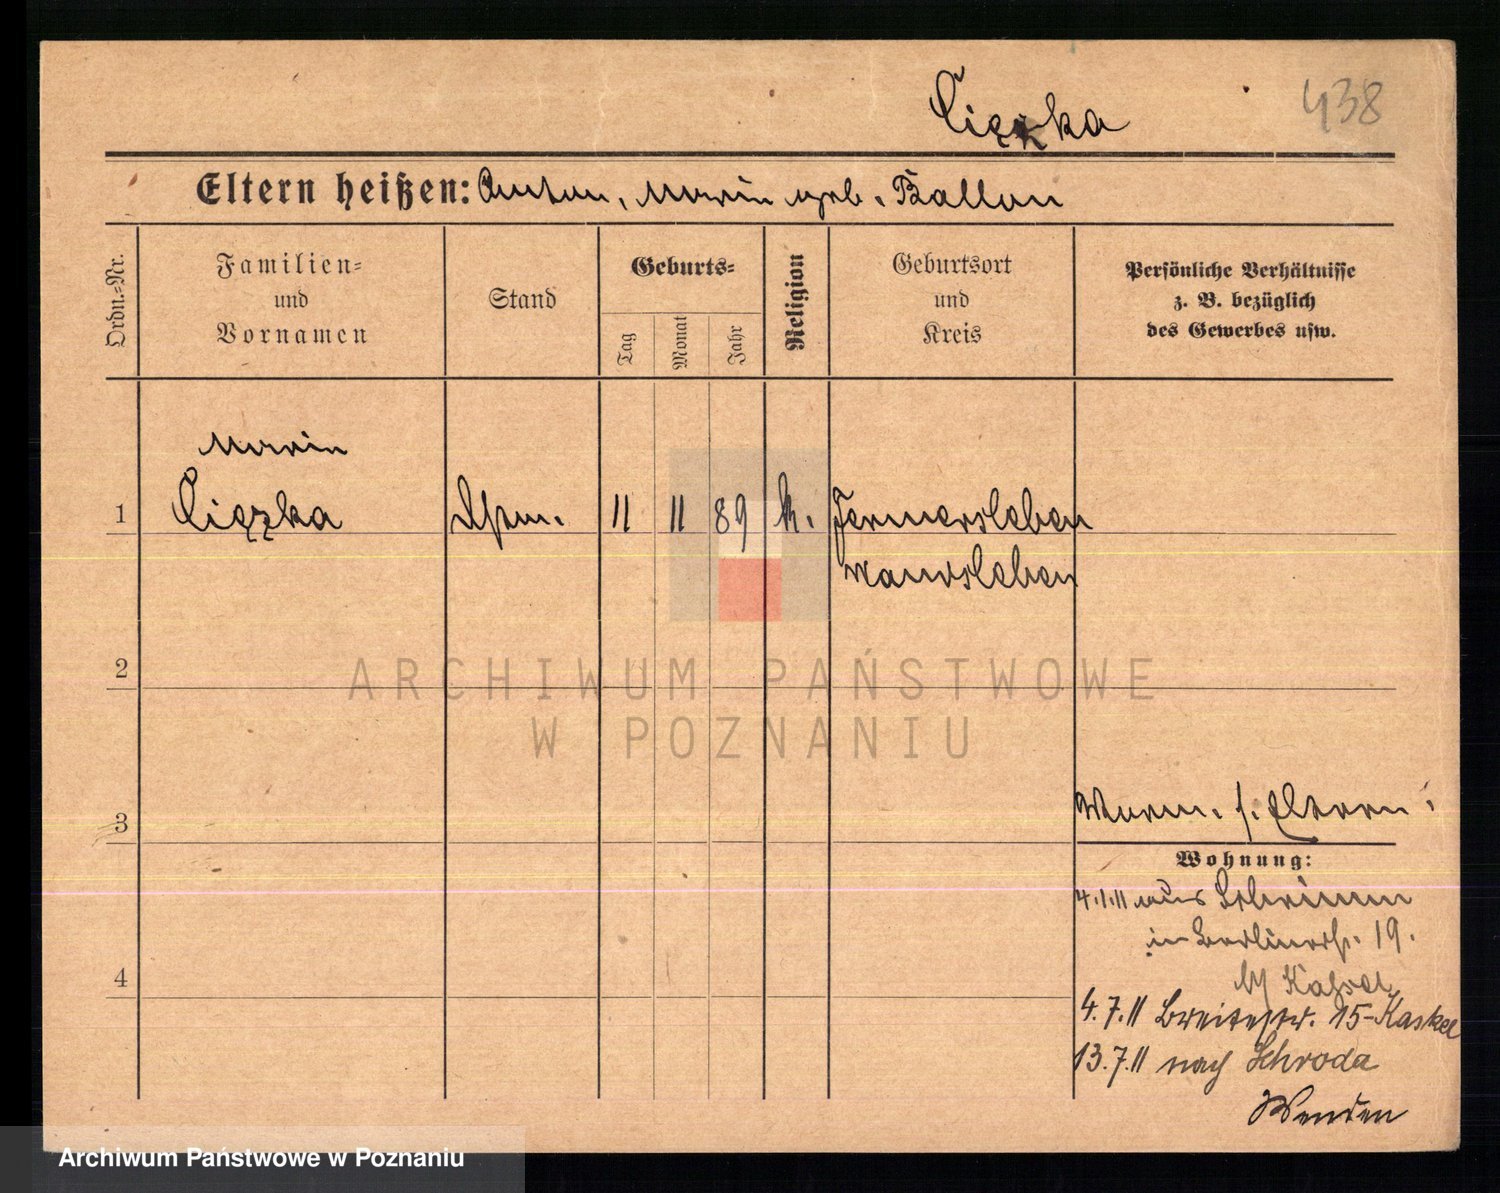 Cięzka
438
Eltern heißen: Anton, Maria geb. Ballon
Ordn.=Nr.
Familien=
und
Vornamen
Stand
Geburts=
Tag
Monat
Jahr
Religion
Geburtsort
und
Kreis
Persönliche Verhältnisse
z. B. bezüglich
des Gewerbes usw.
Maria
1 Cięzka 11 11 89 k. Fermersleben
Wansleben
2
3
Eltern
Wohnung:
4.1.11 aus Schrimm
in Berlinerstr. 19.
4.7.11 Breitestr. 15 - Kaskel
13.7.11 nach Schroda
Wenden
4
ARCHIWUM PAŃSTWOWE
W POZNANIU
Archiwum Państwowe w Poznaniu